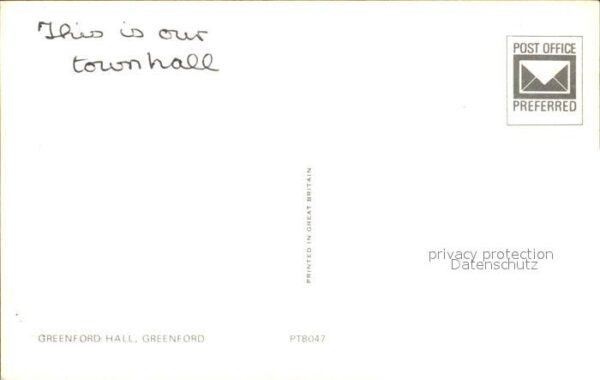 This is our
townhall
POST OFFICE
PREFERRED
PRINTED IN GREAT BRITAIN
privacy protection
Datenschutz
GREENFORD HALL, GREENFORD
PT8047